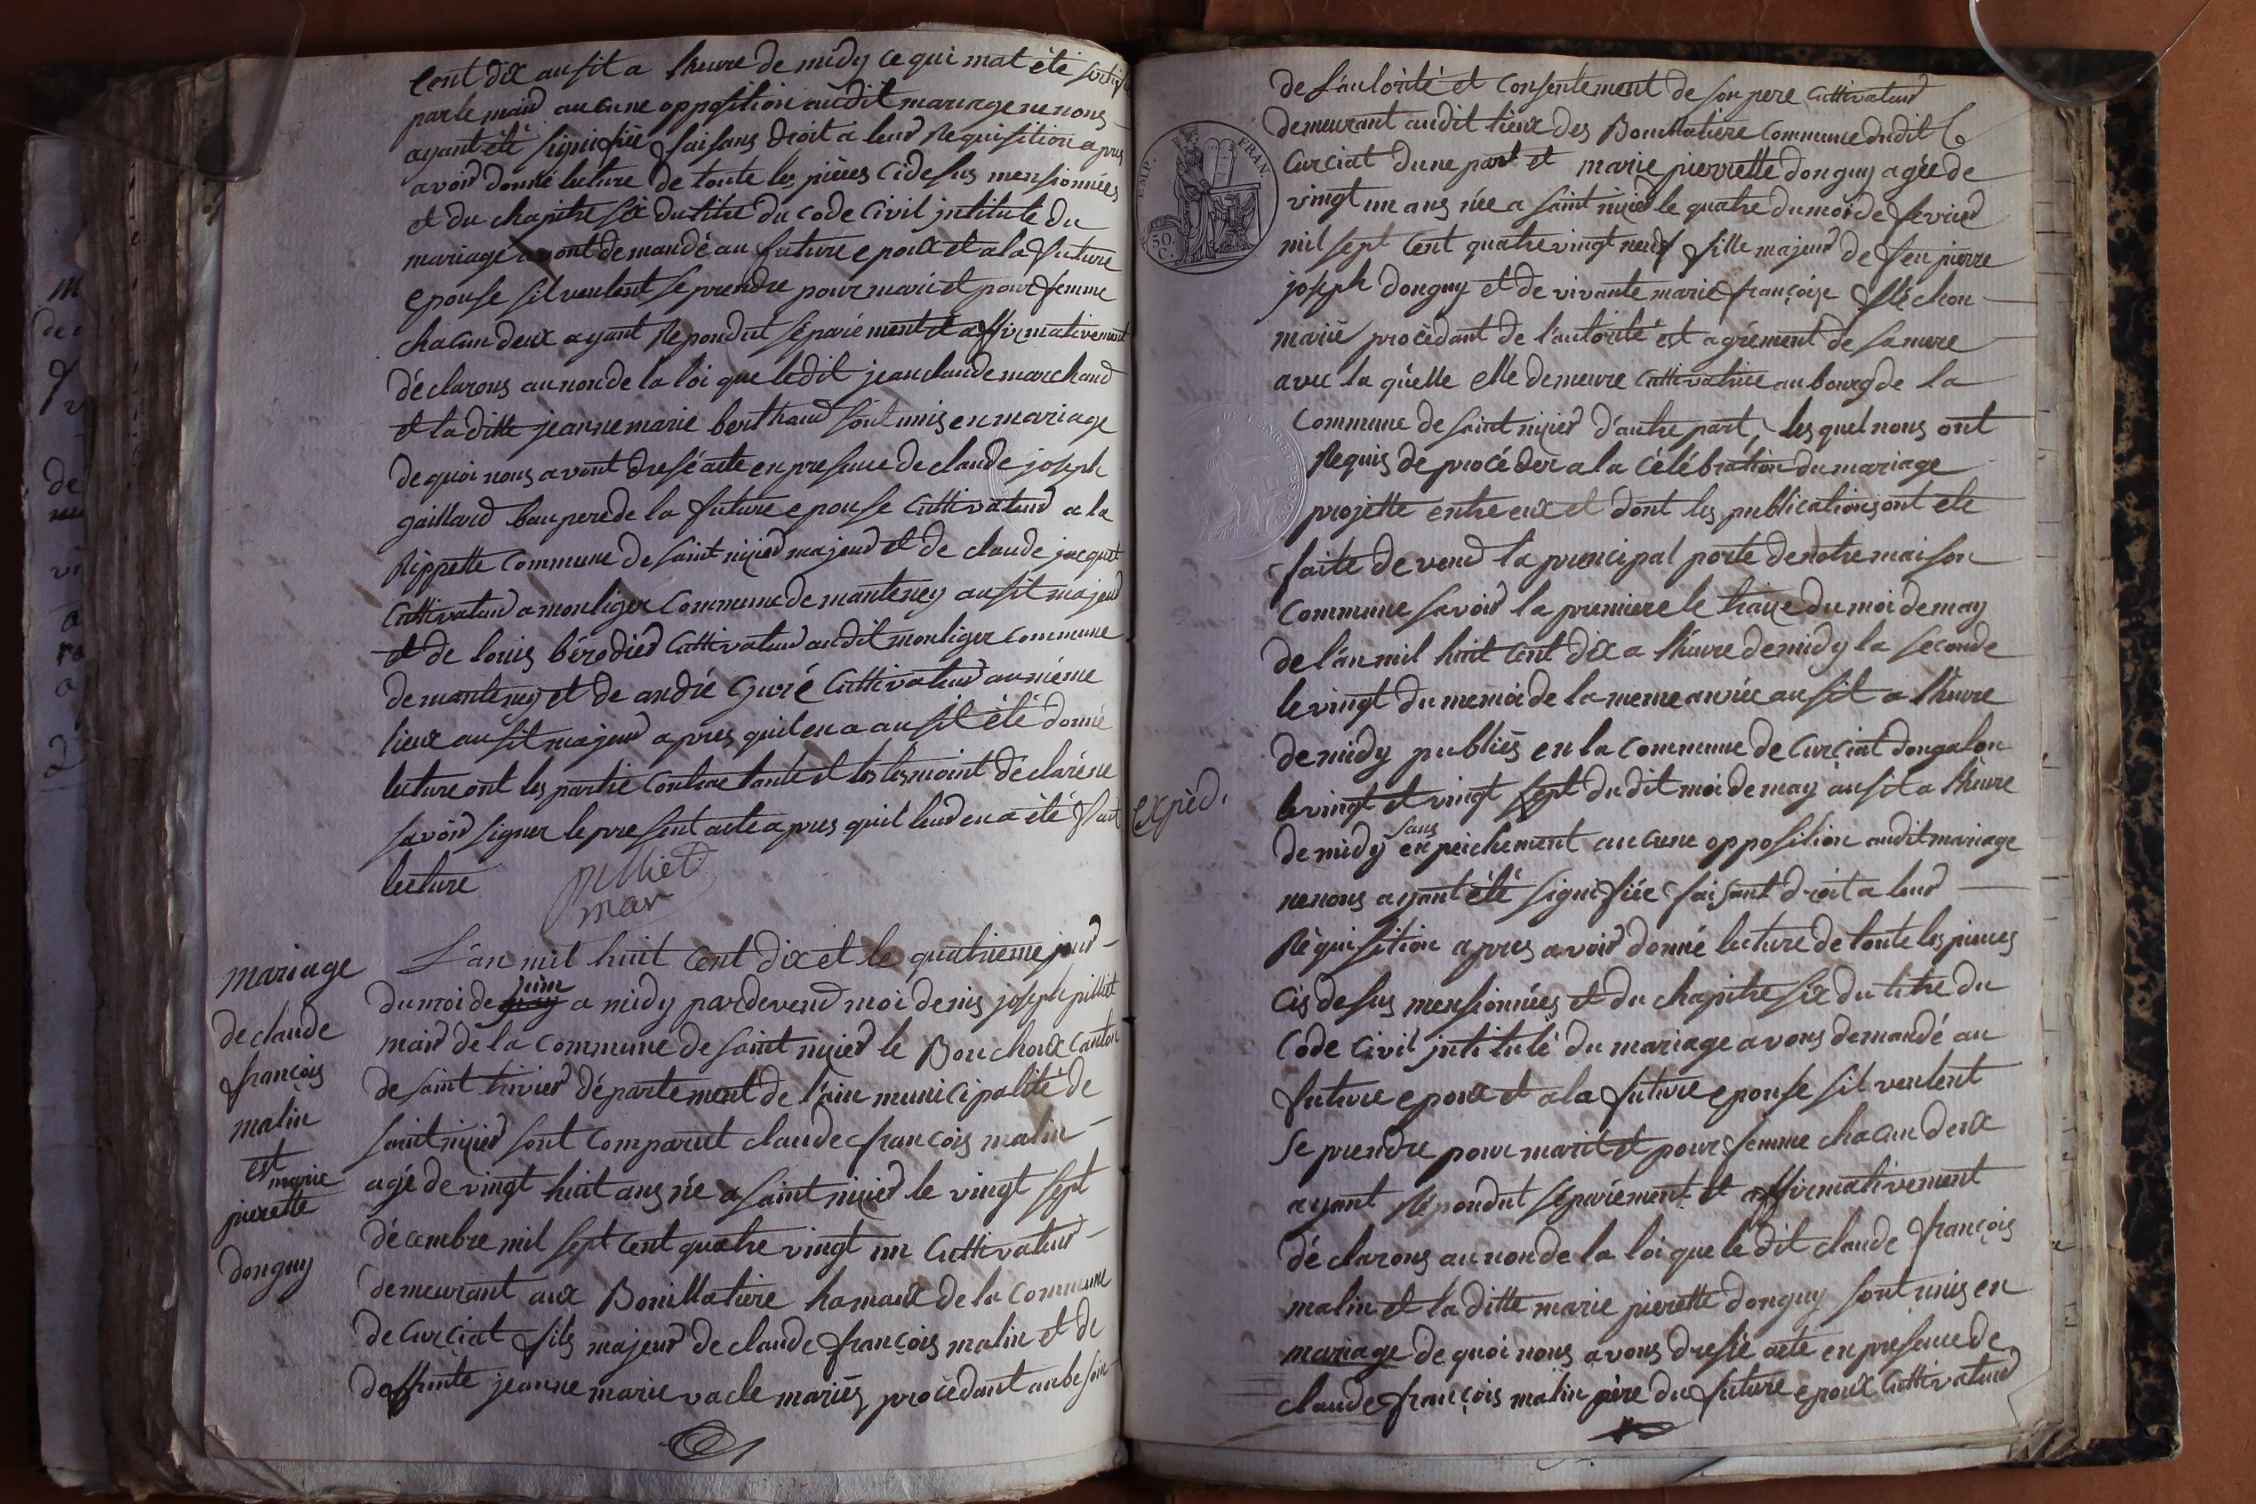 Cent dix ausit a lheure de midy ce qui mat été
par le maire aucune opposition audit mariage ne nous
ayant été signifiée faisans droit a leur Requisition apres
avoir donné lecture de toute les pièces cidesus mensionnées
et du chapitre six du titre du code civil jntitulé du
mariage avont demandé au future epoux et a la future
epouse sil veulent se prendre pour mari et pour femme
chacun deux ayant Repondut séparément et affirmativement
déclarons au non de la loi que ledit jean claude marchand
et la ditte jeanne marie berthaud sont unis en mariage
de quoi nous avont dresé acte en presence de claude joseph
gaillard beau pere de la future epouse Cultivateur a la
Rippette commune de saint nizier majeur et de claude jacquet
Cultivateur a montiger Commune de manteney ausit majeur
et de louis bérodier Cultivateur audit montiger commune
de manteney et de andré Guré Cultivateur au même
lieux ausit majeur apres quil en a ausit été donné
lecture ont les partie contractante et les tesmoint déclaré ne
savoir signer le present acte apres quil leur en a été fait
lecture
pilliet
mar
mariage
de claude
françois
malin
est
marie
pierette
donguy
L'an mil huit cent dix et le quatrieme jour
du moi de may juin a midy pardevend moi denis joseph pilliet
mair de la commune de saint nizier le Bouchoux Canton
de saint trivier département de l'ain municipalité de
saint nizier sont comparut claude françois malin
agé de vingt huit ans née a saint nizier le vingt sept
décembre mil sept cent quatre vingt un Cultivateur
demeurant aux Bouillatiere hamaux de la commune
de Curciat fils majeur de claude françois malin et de
deffunte jeanne marie vacle mariés, procèdant au besoin
de l'autorité et consentement de son pere Cultivateur
demeurant audit lieux des Bouillatiere Commune dudit
Curciat dune part et marie pierrette donguy agée de
vingt un ans née a saint nizier le quatre du moi de fevrier
mil sept cent quatre vingt neuf fille majeur de feu pierre
joseph donguy et de vivante marie françoise fléchon
mariée procèdant de l'autorité est agrément de sa mere
avec la quelle elle demeure Cultivatrice au bourg de la
Commune de saint nizier d'autre part, les quel nous ont
Requis de procéder a la célébration du mariage
projette entre eux et dont les publications ont ete
faite devend la principal porte de notre maison
Commune savoir la premiere le traize du moi de may
de l'an mil huit cent dix a l'heure de midy la seconde
le vingt du memoi de la meme année ausit a l'heure
de midy publiés en la commune de Curciat dongalon
le vingt et vingt sept du dit moi de may ausit a l'heure
expéd.
de midy sans enpeichement aucune opposition audit mariage
ne nous ayant été signifiée faisant droit a leur
Réquisition apres avoir donné lecture de toute les pieces
cis desus mensionnées et du chapitre six du titre du
Code Civil jntitulé du mariage avons demandé au
future epoux et a la future epouse sil veulent
se prendre pour marit et pour femme chacun deux
ayant Répondut séparément et affirmativement
déclarons au non de la loi que le dit claude françois
malin et la ditte marie pierette donguy sont unis en
mariage de quoi nous avons dressé acte en presence de
claude françois malin père du future epoux Cultivateur
EMP. FRAN.
50
C.